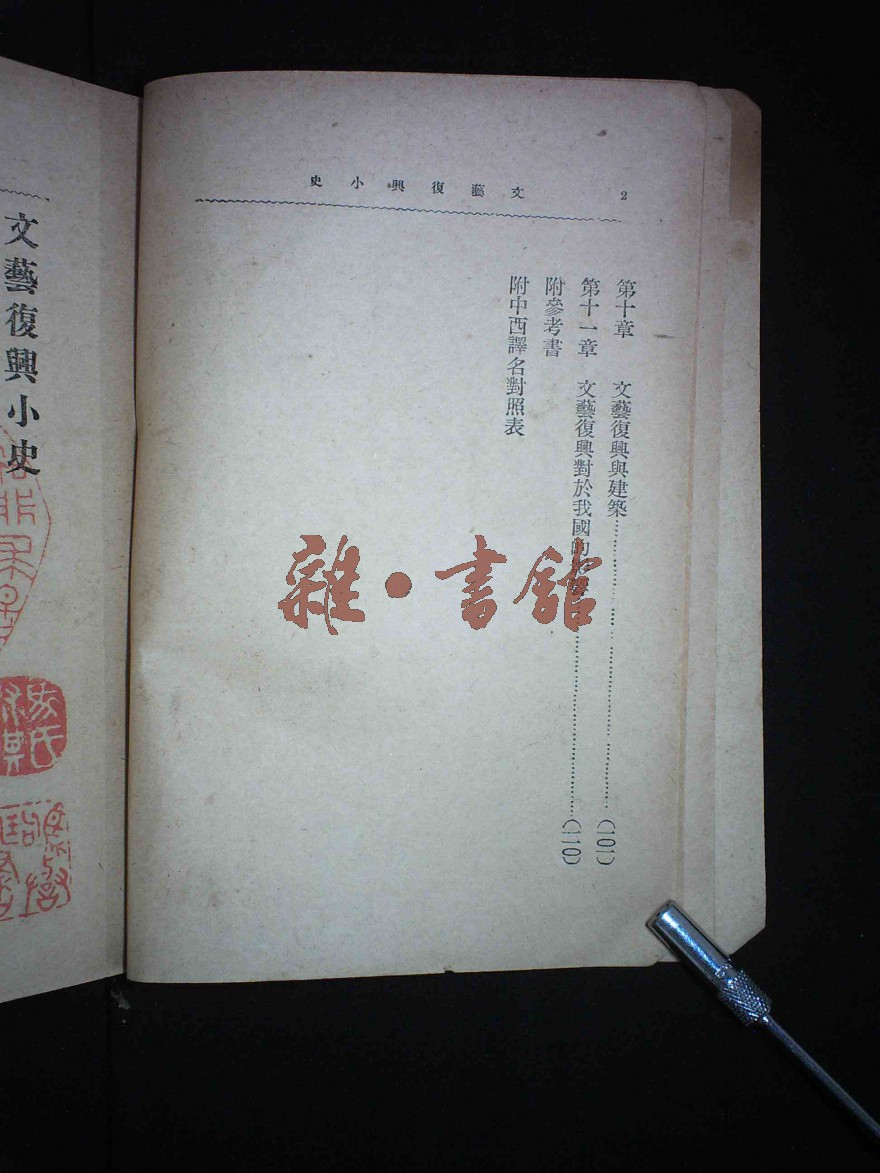 2
文藝復興小史
第十章　文藝復興與建築…………(一〇一)
第十一章　文藝復興對於我國的…………(一一〇)
附參考書
附中西譯名對照表
文藝復興小史
雜·書館